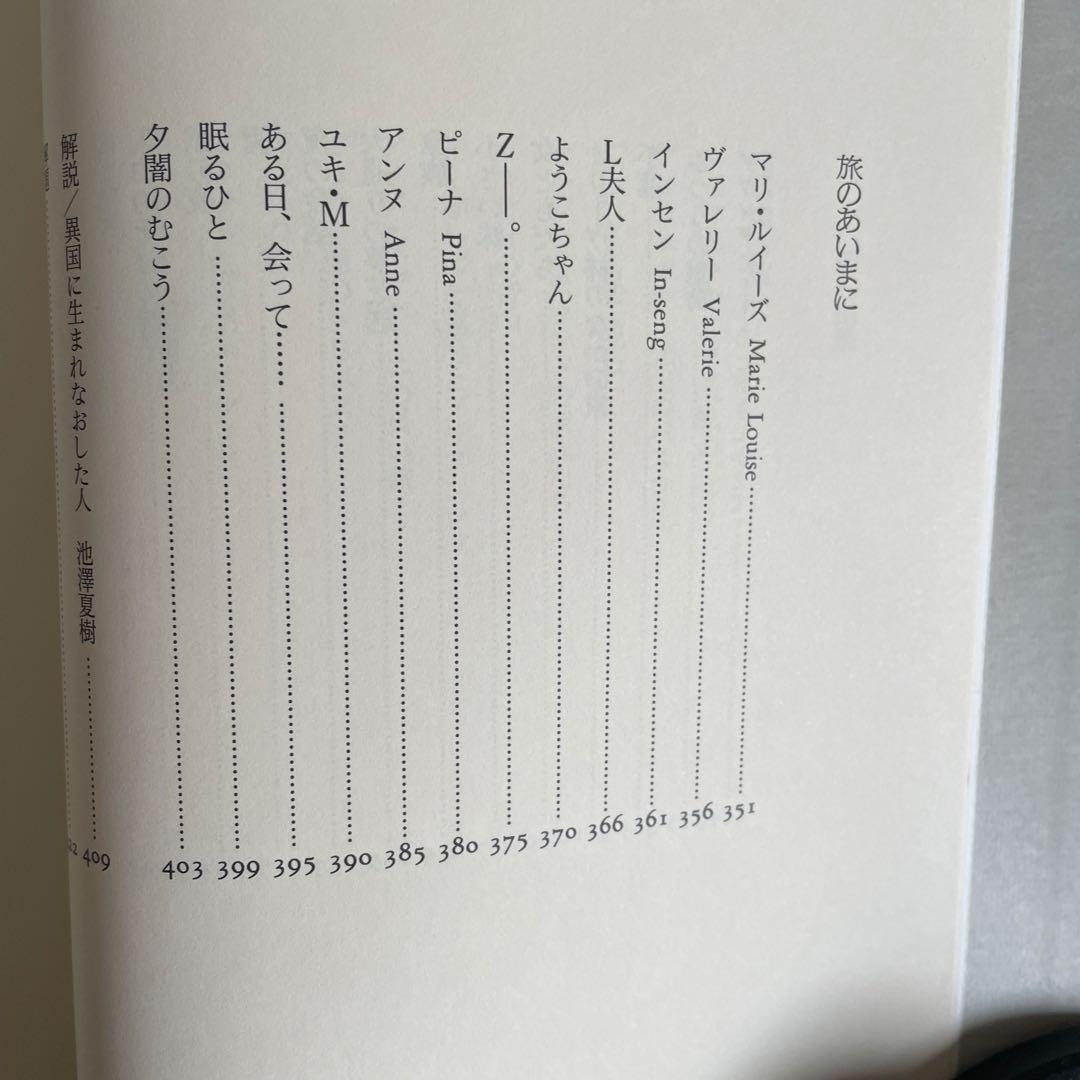 旅のあいまに
マリ・ルイーズ Marie Louise 351
ヴァレリー Valerie 356
インセン In-seng 361
L夫人 366
ようこちゃん 370
Z——。 375
ピーナ Pina 380
アンヌ Anne 385
ユキ・M 390
ある日、会って…… 395
眠るひと 399
夕闇のむこう 403
解説/異国に生まれなおした人 池澤夏樹 409